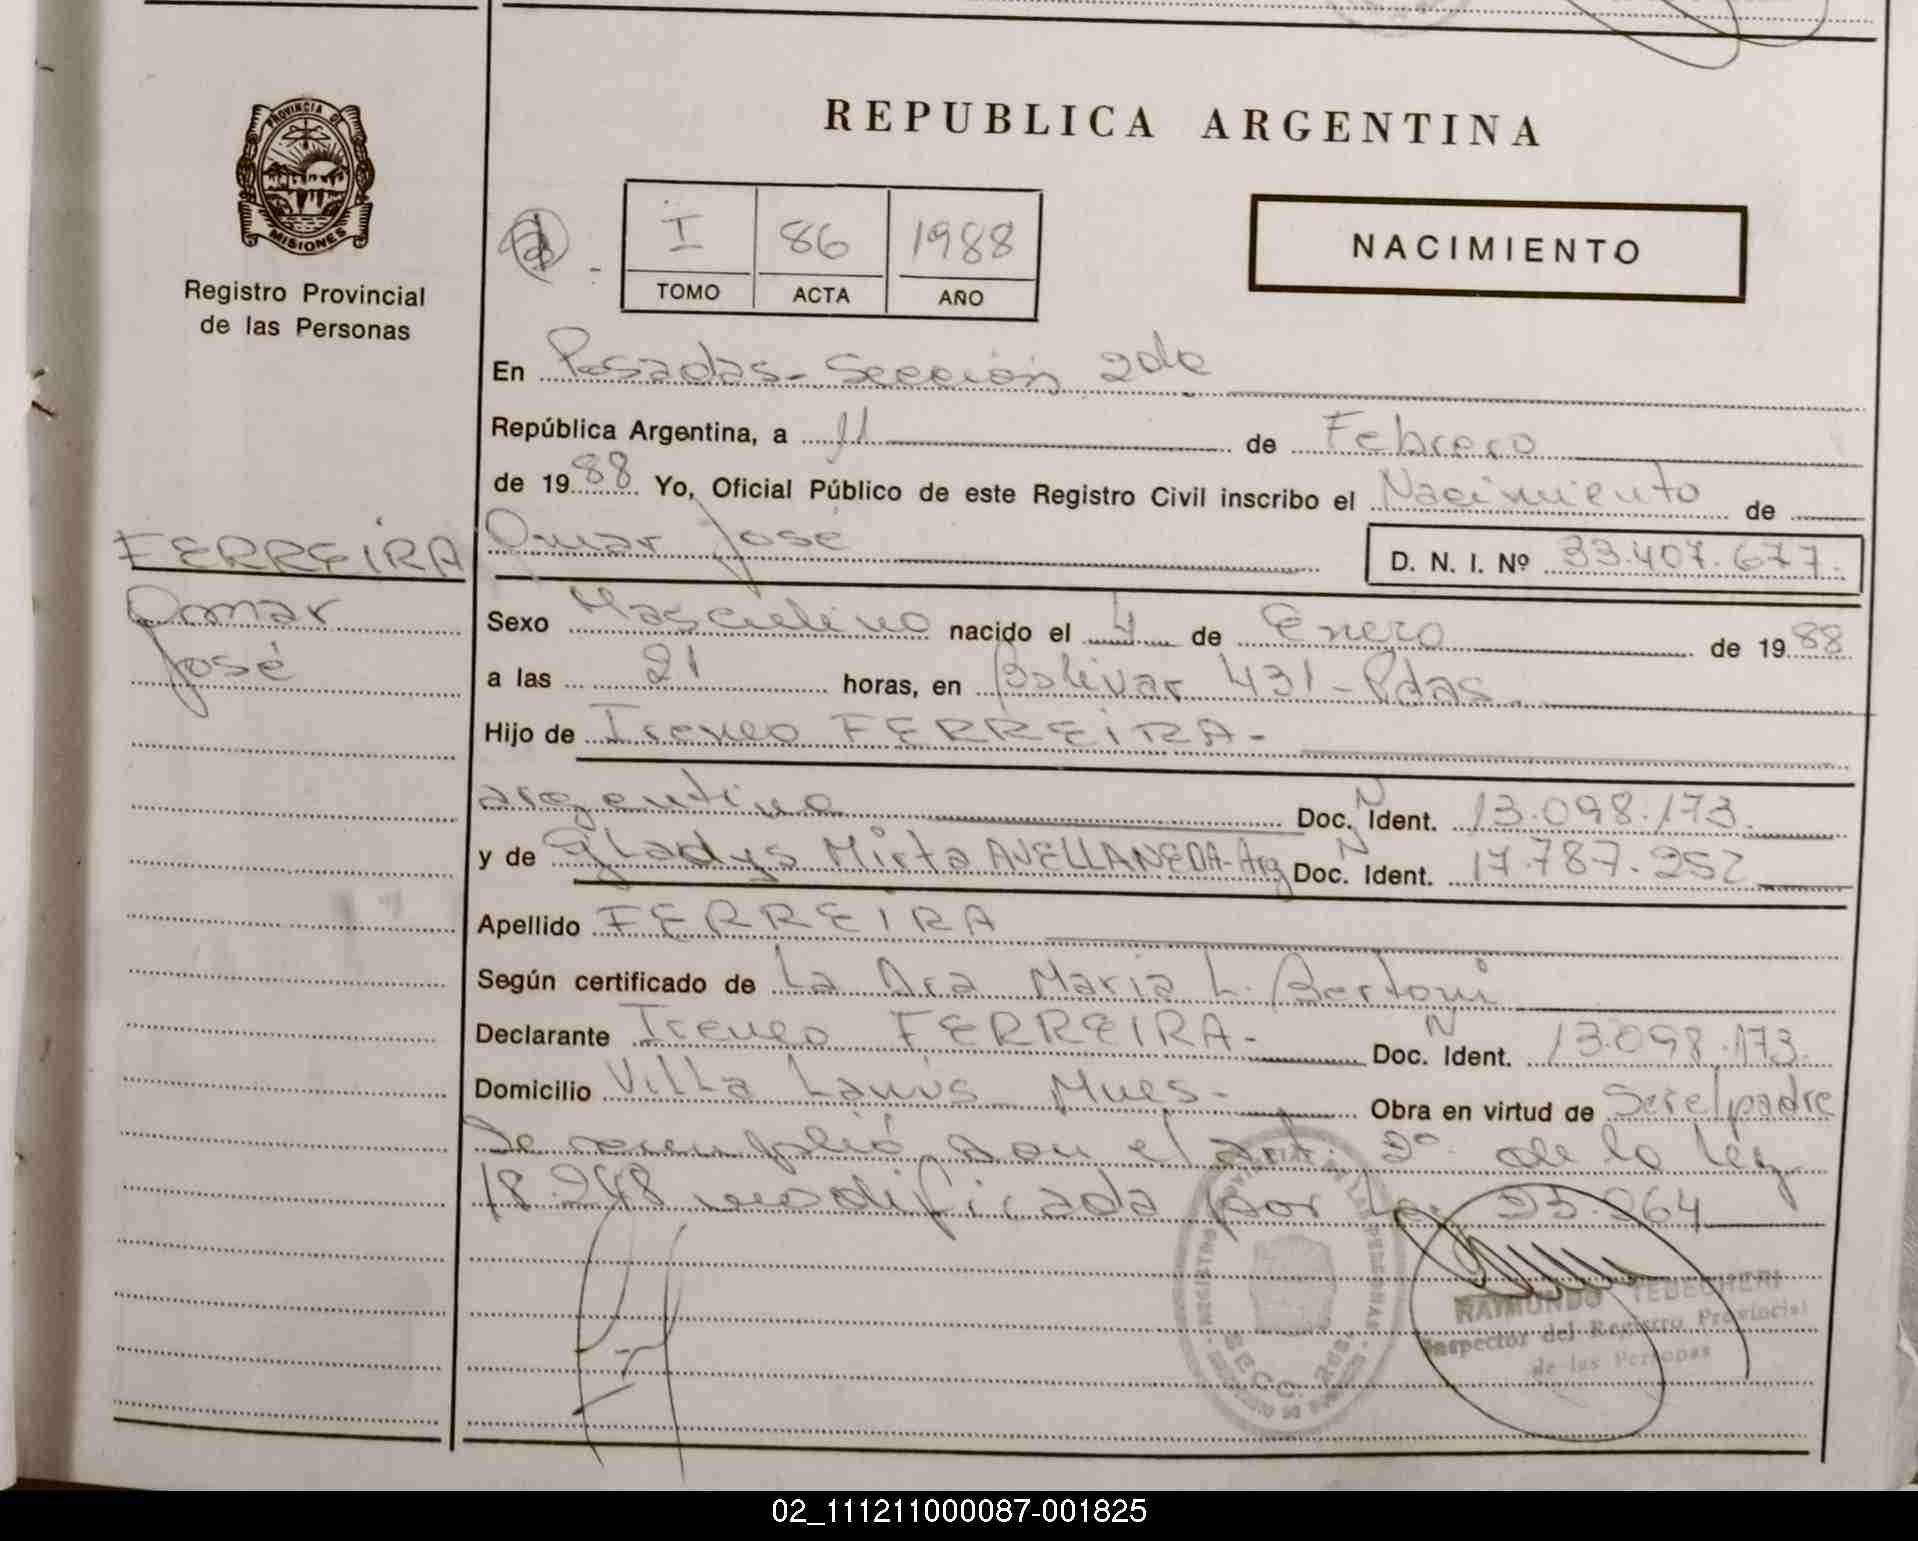 REPUBLICA ARGENTINA
PROVINCIA DE
MISIONES
Registro Provincial
de las Personas
I 86 1988
TOMO ACTA AÑO
NACIMIENTO
En Posadas - Sección 2da
República Argentina, a 11 de Febrero
de 1988 Yo, Oficial Público de este Registro Civil inscribo el Nacimiento de
FERREIRA Omar José D. N. I. Nº 33.407.677.
Omar
José
Sexo Masculino nacido el 4 de Enero de 1988
a las 21 horas, en Bolivar 431 - Pdas
Hijo de Ireneo FERREIRA -
argentino Doc. N Ident. 13.098.173.
y de Gladys Mirta AVELLANEDA - Arg Doc. N Ident. 17.787.252
Apellido FERREIRA
Según certificado de La Dra Maria L. Bertoni
Declarante Ireneo FERREIRA - Doc. N Ident. 13.098.173.
Domicilio Villa Lanús Mnes - Obra en virtud de Ser el padre
Se cumplió con el art. 2º de la ley
18.248 modificada por la 23.264
RAIMUNDO TEBECHERI
Inspector del Registro Provincial
de las Personas
02_111211000087-001825